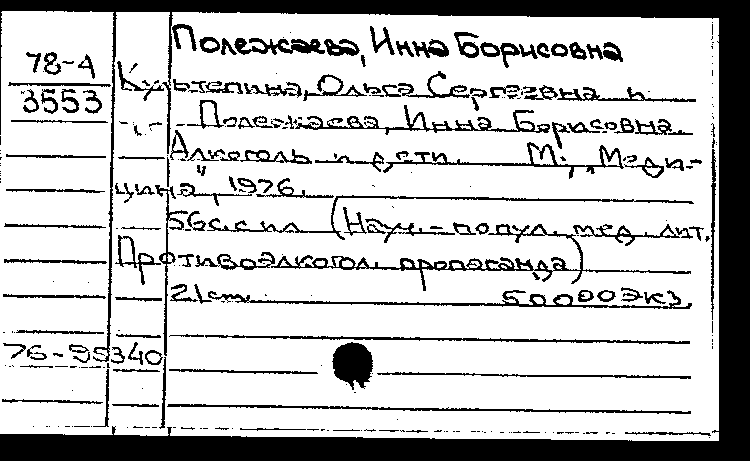 Полежаева, Инна Борисовна
78-4
3553
Культепина, Ольга Сергеевна и
Полежаева, Инна Борисовна.
Алкоголь и дети. М., „Меди-
цина", 1976.
56 с. с ил (Науч.-попул. мед. лит.
Противоалкогол. пропаганда)
21 cm. 50000 экз.
76-95340